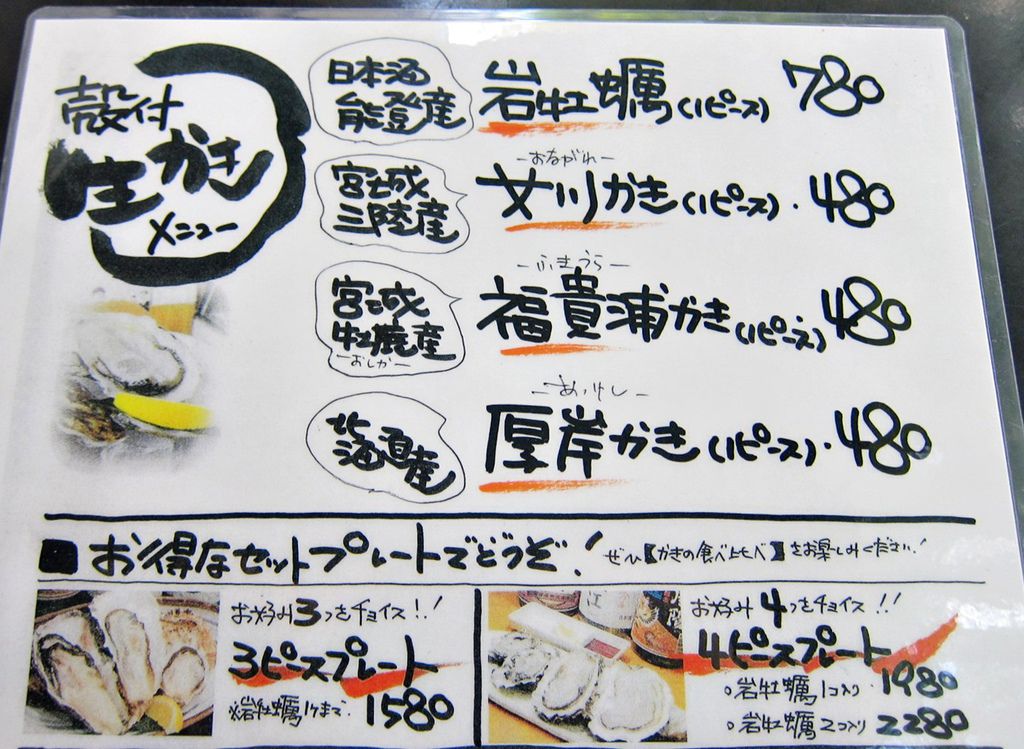 殻付
生かき
メニュー
日本海
能登産
岩牡蠣(1ピース) 780
宮城
三陸産
おながわ
女川かき(1ピース)・480
宮城
牡鹿産
おしか
ふきうら
福貴浦かき(1ピース) 480
北
海道産
あっけし
厚岸かき(1ピース)・480
■お得なセットプレートでどうぞ!
ぜひ【かきの食べ比べ】をお楽しみください!
お好み3つをチョイス!!
3ピースプレート
※岩牡蠣1ケまで 1580
お好み4つをチョイス!!
4ピースプレート
○岩牡蠣1コ入り 1980
○岩牡蠣2コ入り 2280